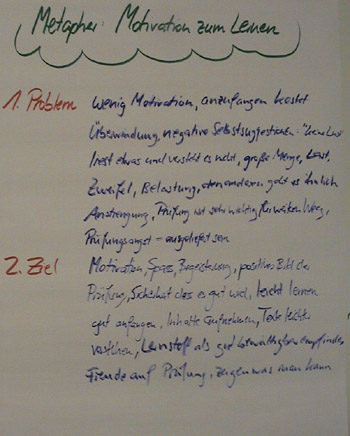 Metapher: Motivation zum Lernen
1. Problem wenig Motivation, anzufangen kostet
Überwindung, negative Selbstsuggestionen: "keine Lust
liest etwas und versteht es nicht, große Menge, Last,
Zweifel, Belastung, den anderen geht es ähnlich
Anstrengung, Prüfung ist sehr wichtig für weiteren Weg,
Prüfungsangst - ausgeliefert sein
2. Ziel Motivation, Spass, Begeisterung, positives Bild der
Prüfung, Sicherheit dass es gut wird, leicht lernen
gut anfangen, Inhalte aufnehmen, Texte leichter
verstehen, Lernstoff als gut bewältigbar empfinden
Freude auf Prüfung, zeigen was man kann